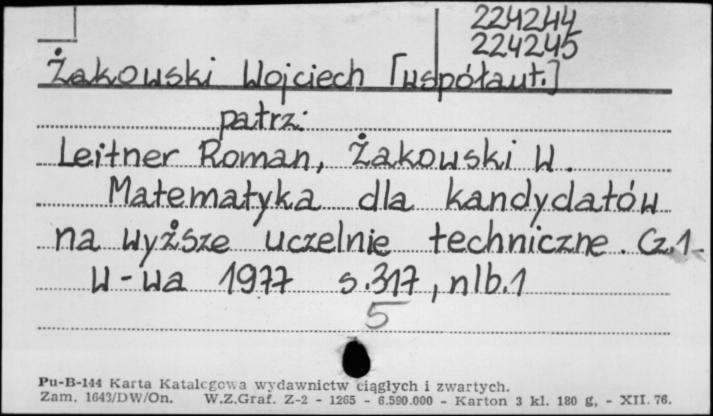 224244
224245
Żakowski Wojciech [współaut.]
patrz:
Leitner Roman, Żakowski W.
Matematyka dla kandydatów
na wyższe uczelnie techniczne. Cz.1
W-wa 1977 s.317, nlb.1
5
Pu-B-144 Karta Katalogowa wydawnictw ciągłych i zwartych.
Zam. 1643/DW/On. W.Z.Graf. Z-2 - 1265 - 6.590.000 - Karton 3 kl. 180 g, - XII. 76.